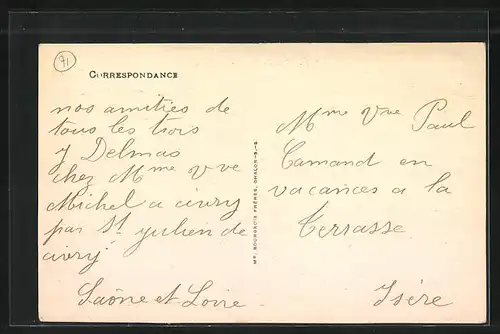 71
CORRESPONDANCE
nos amitiés de
tous les trois
y Delmas
chez Mme vve
Michel a civry
par St julien de
civry
Saône et Loire
MP. BOURGEOIS FRÈRES, CHALON-S-S
Mme Vve Paul
Camand en
vacances a la
Terrasse
Isère